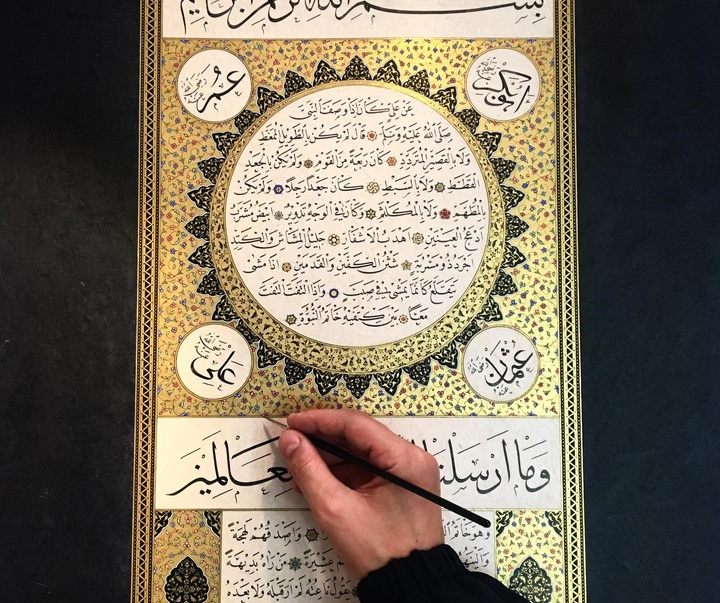 بسم الله الرحمن الرحيم
ابو بكر رضي الله عنه
عمر رضي الله عنه
عن علي كان اذا وصف النبي
صلى الله عليه وسلم قال لم يكن بالطويل الممغط
ولا بالقصير المتردد كان ربعة من القوم ولم يكن بالجعد
القطط ولا بالسبط كان جعدا رجلا ولم يكن
بالمطهم ولا بالمكلثم وكان في الوجه تدوير ابيض مشرب
ادعج العينين اهدب الاشفار جليل المشاش والكتد
اجرد ذو مسربة شثن الكفين والقدمين اذا مشى
تقلع كانما يمشي في صبب واذا التفت التفت
معا بين كتفيه خاتم النبوة
عثمان رضي الله عنه
علي رضي الله عنه
وما ارسلناك للعالمين
وهو خاتم واصدقهم لهجة
والينهم عشيرة من راه بديهة
يقول ناعته لم ار قبله ولا بعده